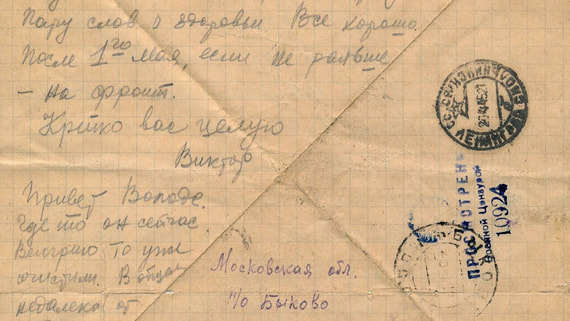 Пару слов о здоровьи Все хорошо.
После 1го мая, если не раньше
– на фронт.
Крепко вас целую
Виктор
Привет Володе.
Где то он сейчас
Венгрию то уже
очистили. В общем
недалеко от
Московская обл.
п/о Быково
ПРОСМОТРЕНО
Военной Цензурой
10924
ЛЕНИНГРАД